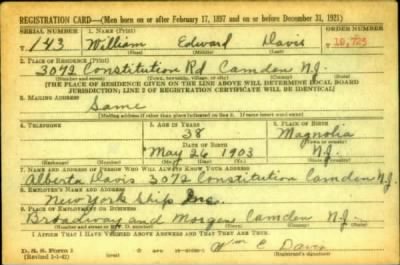 REGISTRATION CARD—(Men born on or after February 17, 1897 and on or before December 31, 1921)
SERIAL NUMBER 1. NAME (Print) ORDER NUMBER
T 143 William Edward Davis T 10,725
(First) (Middle) (Last)
2. PLACE OF RESIDENCE (Print)
3072 Constitution Rd Camden N.J.
(Number and street) (Town, township, village, or city) (County) (State)
[THE PLACE OF RESIDENCE GIVEN ON THE LINE ABOVE WILL DETERMINE LOCAL BOARD
JURISDICTION; LINE 2 OF REGISTRATION CERTIFICATE WILL BE IDENTICAL]
3. MAILING ADDRESS
Same
[Mailing address if other than place indicated on line 2. If same insert word same]
4. TELEPHONE 5. AGE IN YEARS 6. PLACE OF BIRTH
38 Magnolia
DATE OF BIRTH (Town or county)
May 26 1903 N.J.
(Exchange) (Number) (Mo.) (Day) (Yr.) (State or country)
7. NAME AND ADDRESS OF PERSON WHO WILL ALWAYS KNOW YOUR ADDRESS
Alberta Davis 3072 Constitution Camden N.J.
8. EMPLOYER'S NAME AND ADDRESS
New York Ship Inc.
9. PLACE OF EMPLOYMENT OR BUSINESS
Broadway and Morgan Camden N.J.
(Number and street or R. F. D. number) (Town) (County) (State)
I AFFIRM THAT I HAVE VERIFIED ABOVE ANSWERS AND THAT THEY ARE TRUE.
D. S. S. Form 1
(Revised 1-1-42) (over) Wm E. Davis
(Registrant's signature)